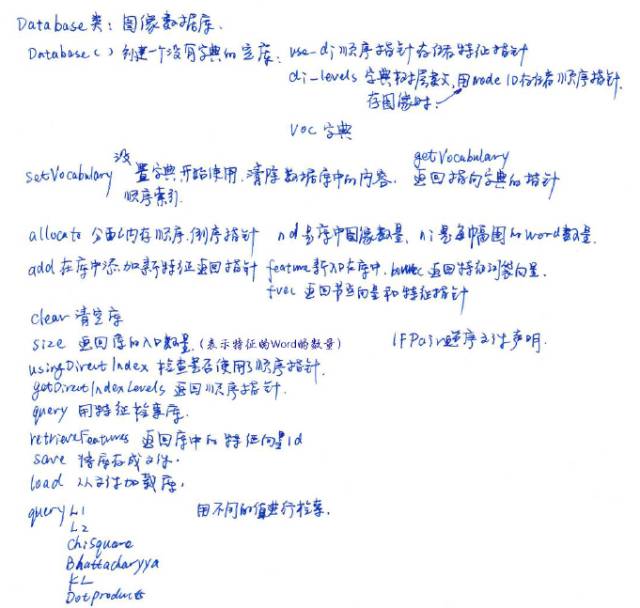 Database类：图像数据库.
Database() 创建一个没有字典的空库. use_di 顺序指针存储特征指针
di_levels 字典树层数, 用node ID存存着顺序指针.
存图像时.
voc 字典
setVocabulary 设置字典开始使用. 清库数据库中的内容. getVocabulary 返回指向字典的指针
顺序索引.
allocate 分配内存顺序. 倒序指针 nd是库中图像数量, ni是每幅图的word数量.
add 在库中添加新特征返回指针 feature 新入口在库中, bowvec 返回特征词袋向量.
fvec 返回节点向量和特征指针
clear 清空库
size 返回库的入口数量. (表示特征的Word的数量) IFPair 逆序文件声明.
usingDirectIndex 检查是否使用了顺序指针.
getDirectIndexLevels 返回顺序指针.
query 用特征检索库.
retrieveFeatures 返回库中的特征向量id
save 将库存成文件.
load 从文件加载库.
query L1 用不同的值进行检索.
L2
ChiSquare
Bhattacharyya
KL
Dotproduct